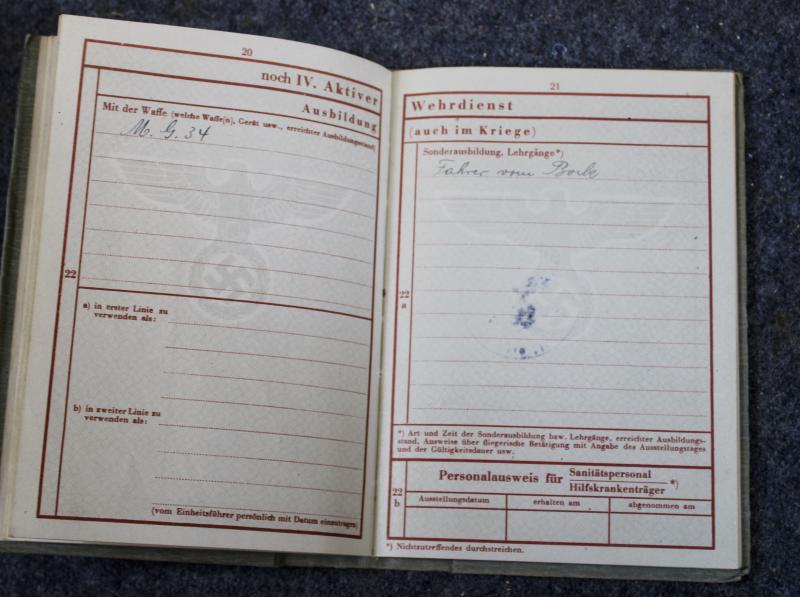 20
noch IV. Aktiver
Ausbildung
Mit der Waffe (welche Waffe(n), Gerät usw., erreichter Ausbildungsstand)
M. G. 34
22
a) in erster Linie zu
verwenden als:
b) in zweiter Linie zu
verwenden als:
(vom Einheitsführer persönlich mit Datum einzutragen)
21
Wehrdienst
(auch im Kriege)
Sonderausbildung, Lehrgänge*)
Fahrer vom Bock
22
a
*) Art und Zeit der Sonderausbildung bzw. Lehrgänge, erreichter Ausbildungs-
stand, Ausweise über fliegerische Betätigung mit Angabe des Ausstellungstages
und der Gültigkeitsdauer usw.
22
b
Personalausweis für Sanitätspersonal
Hilfskrankenträger *)
Ausstellungsdatum erhalten am abgenommen am
*) Nichtzutreffendes durchstreichen.